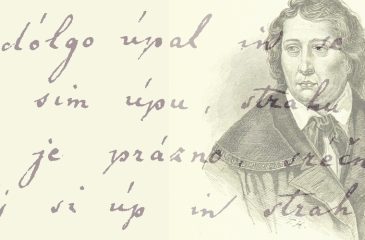 dólgo úpal in se
sim úpu, strahu
je prázno, srečn
si úp in strah